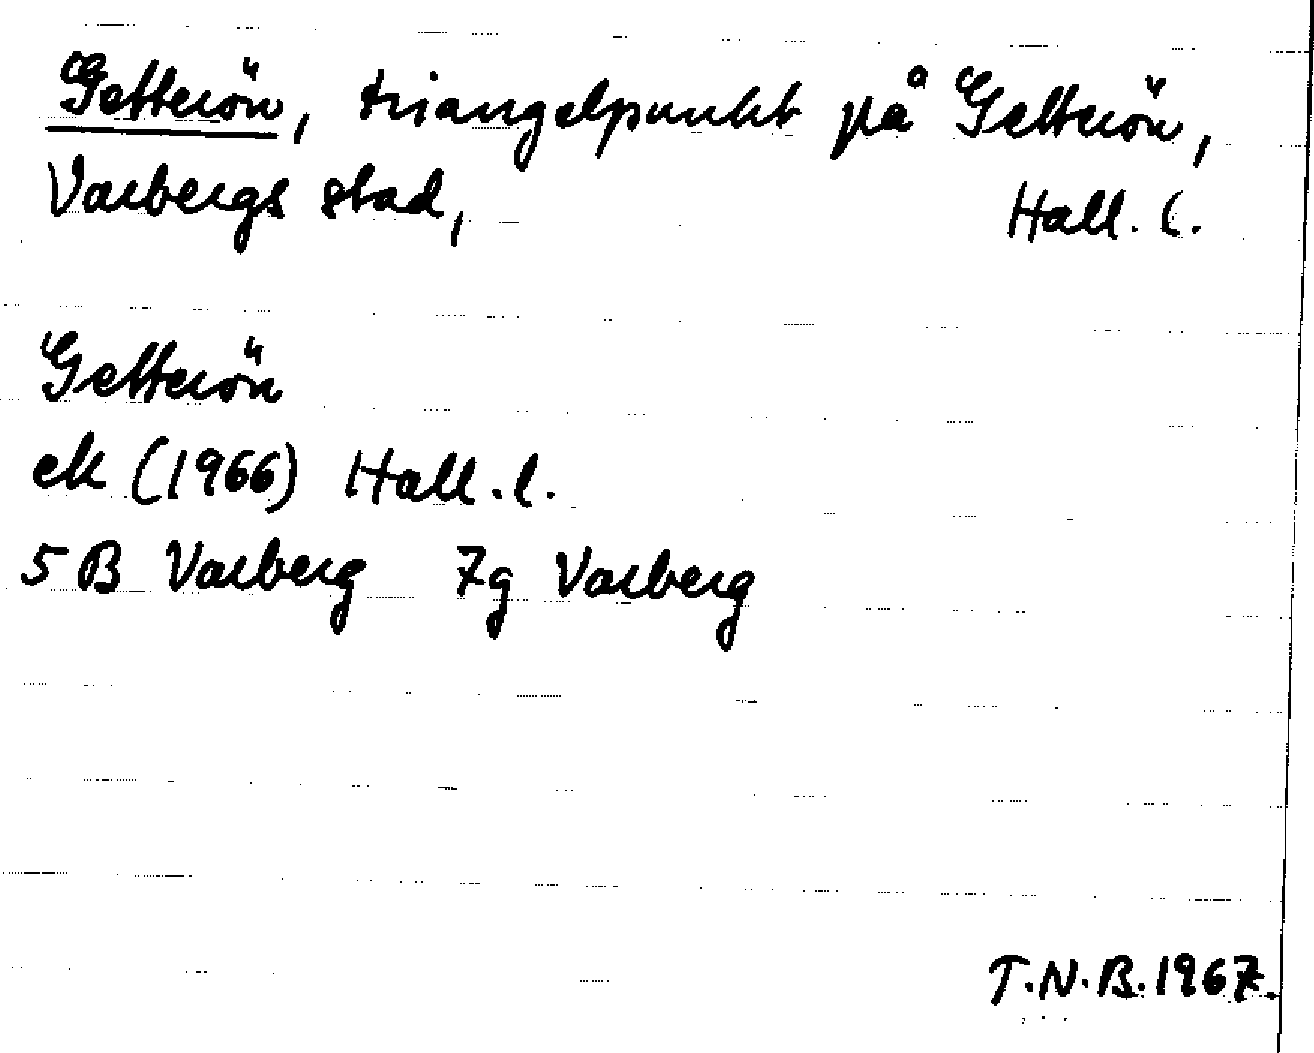 Getterön, triangelpunkt på Getterön,
Varbergs stad, Hall. l.
Getterön
ek (1966) Hall. l.
5 B Varberg 7g Varberg
T.N.B. 1967.